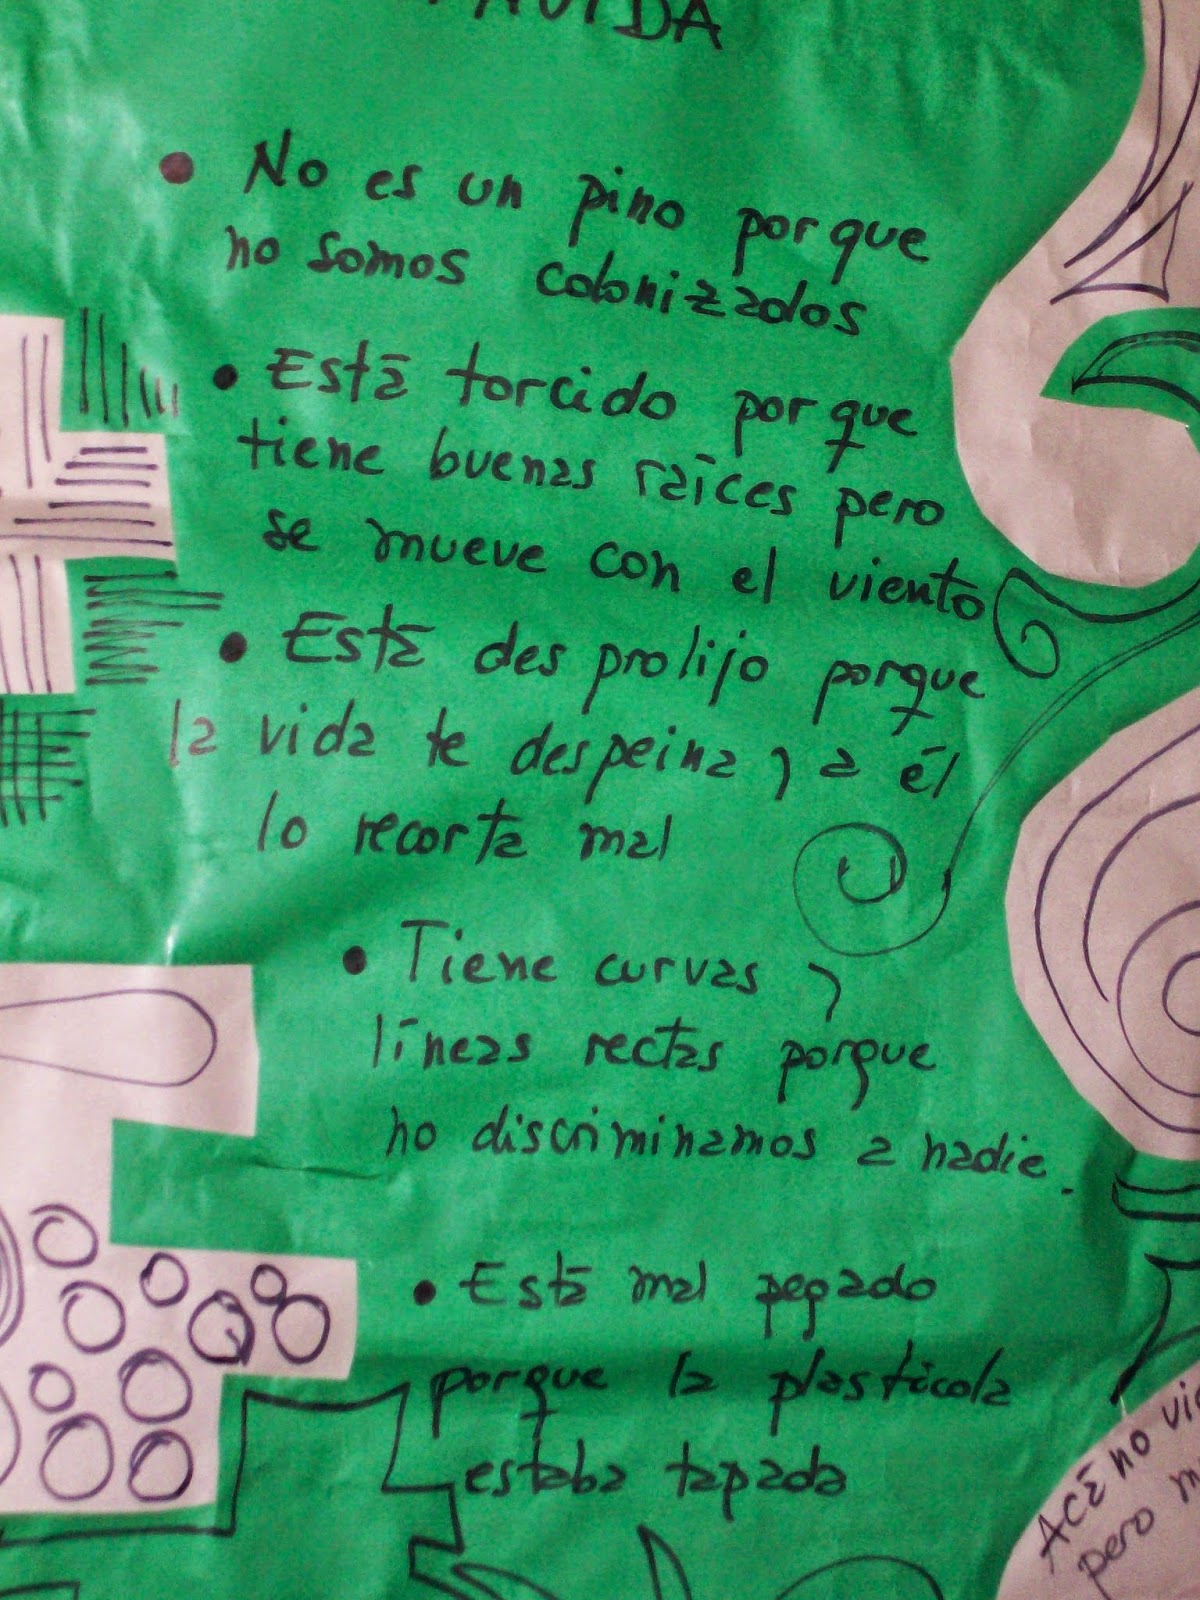 • No es un pino porque
no somos colonizados
• Está torcido porque
tiene buenas raíces pero
se mueve con el viento
• Está desprolijo porque
la vida te despeina y a él
lo recorta mal
• Tiene curvas y
líneas rectas porque
no discriminamos a nadie.
• Está mal pegado
porque la plasticola
estaba tapada
Acá no
pero